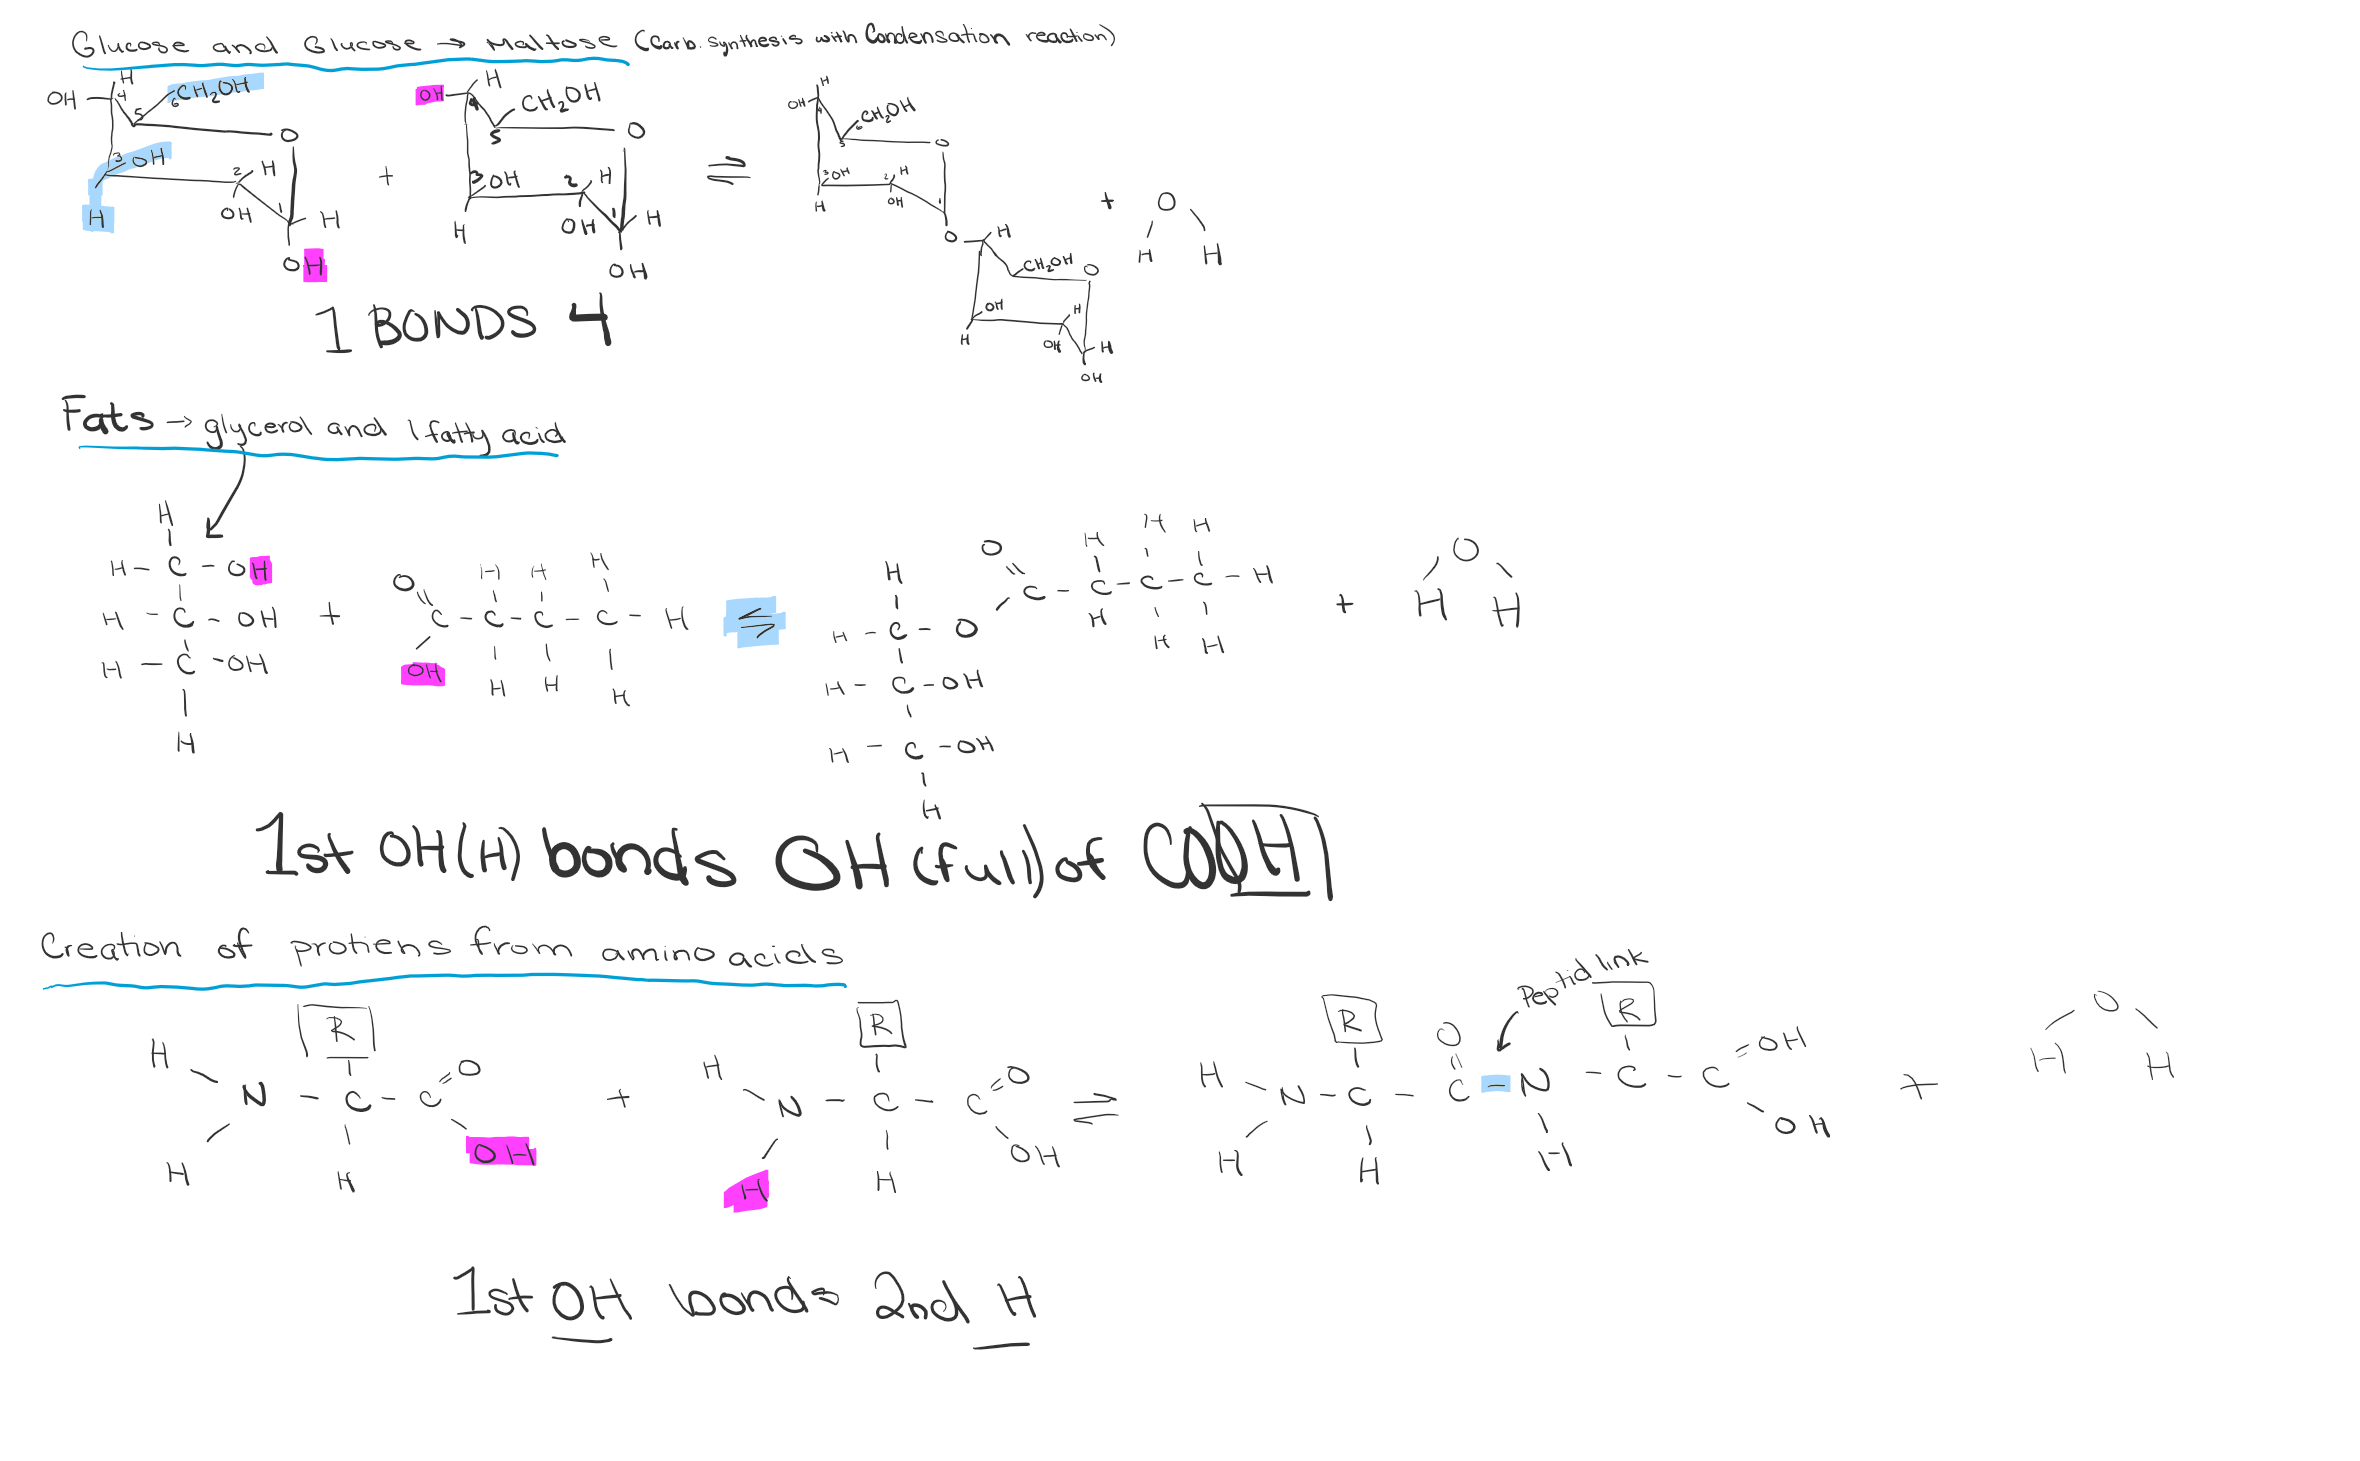 Glucose and Glucose → Maltose (Carb. synthesis with Condensation reaction)
H H H
OH 4 6CH2OH OH 4 CH2OH OH 4 6CH2OH
5 O 5 O 5 O
3 OH 2 H + 3 OH 2 H ⇌ 3 OH 2 H + O
H OH 1 H H OH 1 H H OH 1 H H
OH OH O H
CH2OH O
OH H
H OH H
OH
1 BONDS 4
Fats → glycerol and 1 fatty acid
H H H H O H H H O
H - C - OH O = C - C - C - C - H H C - C - C - C - H H H
H - C - OH + OH H H H ⇌ H - C - O H H H +
H - C - OH H - C - OH
H H - C - OH
H
1st OH(H) bonds OH (full) of COOH
Creation of protiens from amino acids
Peptid link
R R R R O
H N - C - C = O H N - C - C = O H N - C - C - N - C - C = OH H H
H H OH + H H OH ⇌ H H O H OH +
1st OH bonds 2nd H